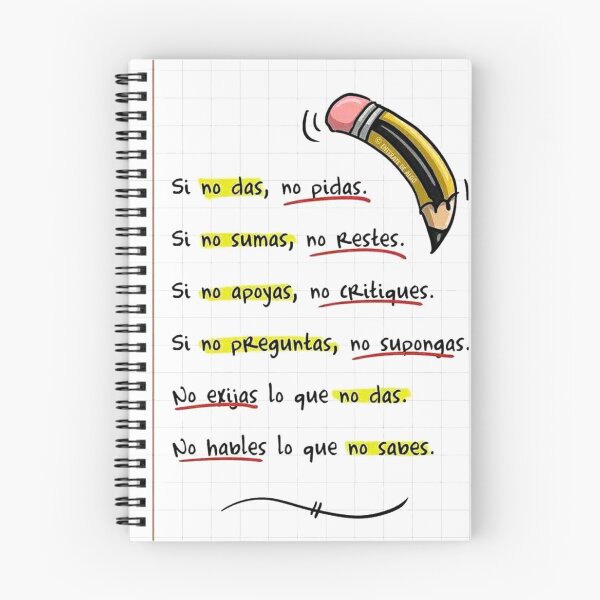 Si no das, no pidas.
Si no sumas, no Restes.
Si no apoyas, no cRitiques.
Si no pReguntas, no supongas.
No exijas lo que no das.
No hables lo que no sabes.